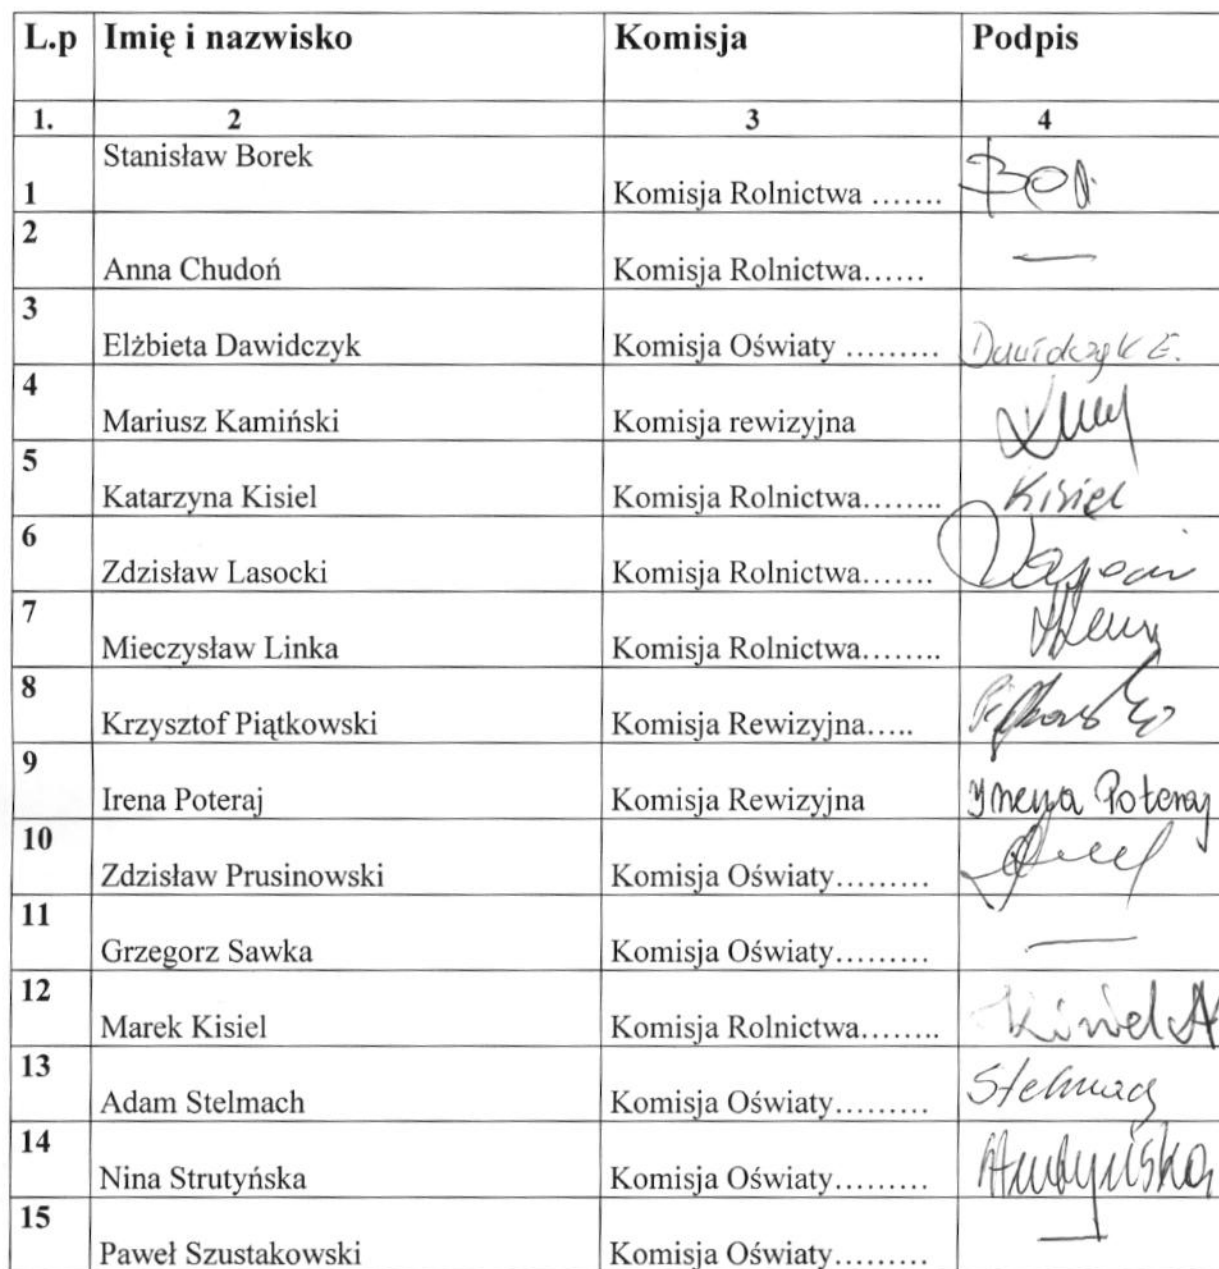 L.p Imię i nazwisko Komisja Podpis
1. 2 3 4
1 Stanisław Borek Komisja Rolnictwa .......
2 Anna Chudoń Komisja Rolnictwa...... —
3 Elżbieta Dawidczyk Komisja Oświaty ......... Dawidczyk E.
4 Mariusz Kamiński Komisja rewizyjna
5 Katarzyna Kisiel Komisja Rolnictwa........ Kisiel
6 Zdzisław Lasocki Komisja Rolnictwa.......
7 Mieczysław Linka Komisja Rolnictwa........
8 Krzysztof Piątkowski Komisja Rewizyjna.....
9 Irena Poteraj Komisja Rewizyjna Irena Poteraj
10 Zdzisław Prusinowski Komisja Oświaty.........
11 Grzegorz Sawka Komisja Oświaty......... —
12 Marek Kisiel Komisja Rolnictwa........ Kisiel
13 Adam Stelmach Komisja Oświaty......... Stelmach
14 Nina Strutyńska Komisja Oświaty......... Strutyńska
15 Paweł Szustakowski Komisja Oświaty......... —